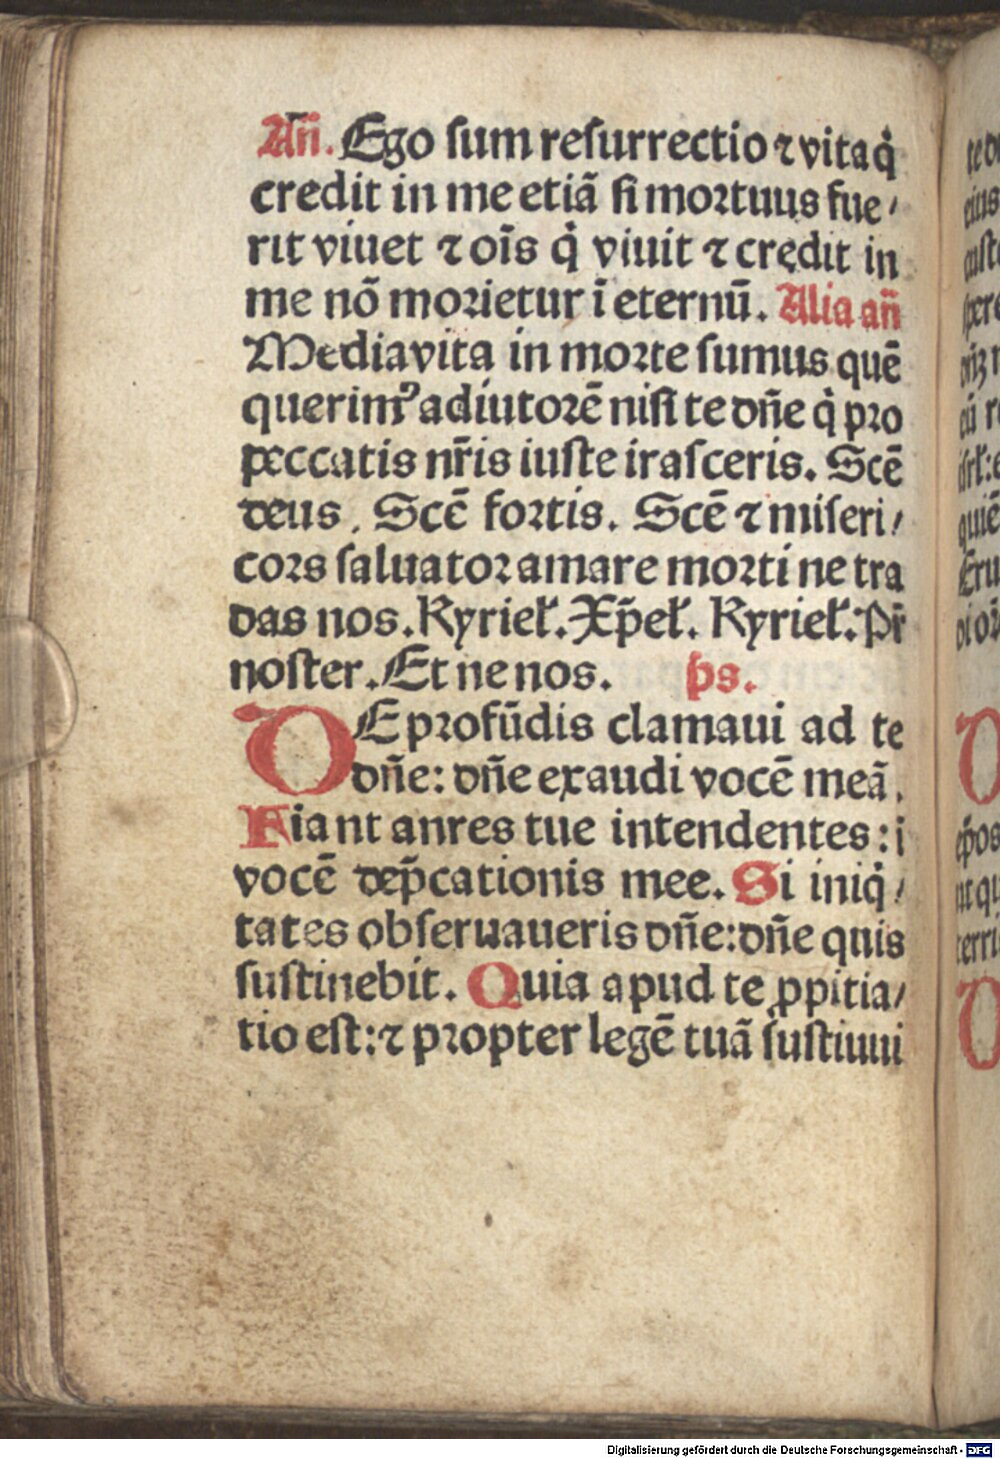 Añ. Ego ſum reſurrectio ⁊ vita q̇
credit in me etiã ſi mortuus fue⸗
rit viuet ⁊ oĩs q̇ viuit ⁊ credit in
me nõ morietur ĩ eternũ. Alia añ
Media vita in morte ſumus quẽ
querimꝰ adiutorẽ niſi te dñe q̇ pro
peccatis nr̃is iuſte iraſceris. Scẽ
deus. Scẽ fortis. Scẽ ⁊ miſeri⸗
cors ſaluator amare morti ne tra
das nos. Kyrieł. Xp̃eł. Kyrieł. Pr̃
noſter. Et ne nos. ps.
DE profũdis clamaui ad te
dñe: dñe exaudi vocẽ meã.
Fiant aures tue intendentes: ĩ
vocẽ dep̃cationis mee. Si iniq̇⸗
tates obſeruaueris dñe: dñe quis
ſuſtinebit. Quia apud te ꝓpitia⸗
tio eſt: ⁊ propter legẽ tuã ſuſtinui
Digitalisierung gefördert durch die Deutsche Forschungsgemeinschaft - DFG